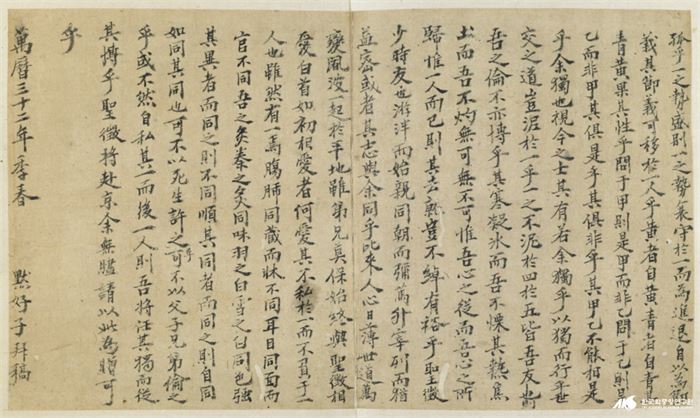 孤乎一之勢盛則一之勢衰守於一而爲進退自以爲節
義其節義可移於一人乎黄者自黄青者自青
青黄果其性乎問于甲則是甲而非乙問于乙則是
乙而非甲其俱是乎其俱非乎其甲乙不能相是
乎余獨也視今之士其有若余獨乎以獨而行乎世
交之道豈泥於一乎一之不泥於四於五皆吾友也則
吾之倫不亦博乎其寒凝氷而吾不慄其熱焦
土而吾不灼無可無不可惟吾心之從而吾心之所
歸惟一人而已則其去就豈不綽有裕乎聖徵
少時友也游泮而始親同朝而彌篤升宰列而猶
益密或者其志與余同乎比來人心日薄世道萬
變風波一起於平地雖弟兄莫保始終與聖徵相
愛白首如初相愛者何愛其不私於一而不貳于二
人也雖然有一焉膓肺同蔵而眛不同耳目同面而
官不同吾之炙秦之炙同味羽之白雪之白同色強
其異者而同之則不同順其同者而同之則自同
如同其同也可不以死生許之乎可不以父子兄弟倫之
乎或不然自私其一而後一人則吾將任其獨而從
其博乎聖徵將赴京余無贐請以此為贈可
乎
萬曆三十二年季春 默好子拜稿